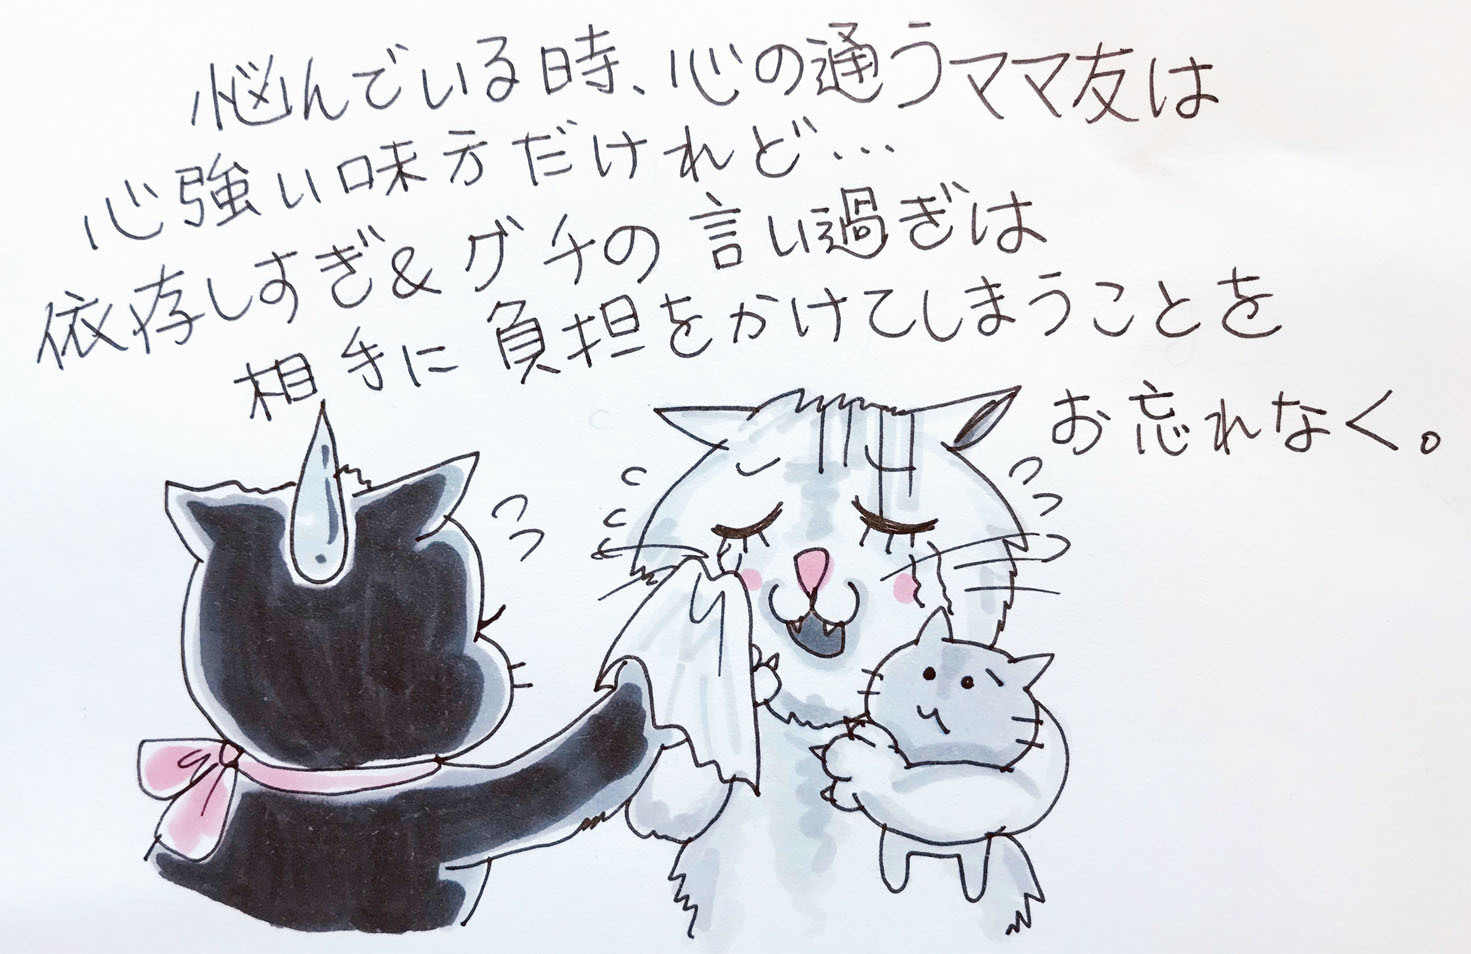 悩んでいる時、心の通うママ友は
心強い味方だけれど…
依存しすぎ&グチの言い過ぎは
相手に負担をかけてしまうことを
お忘れなく。